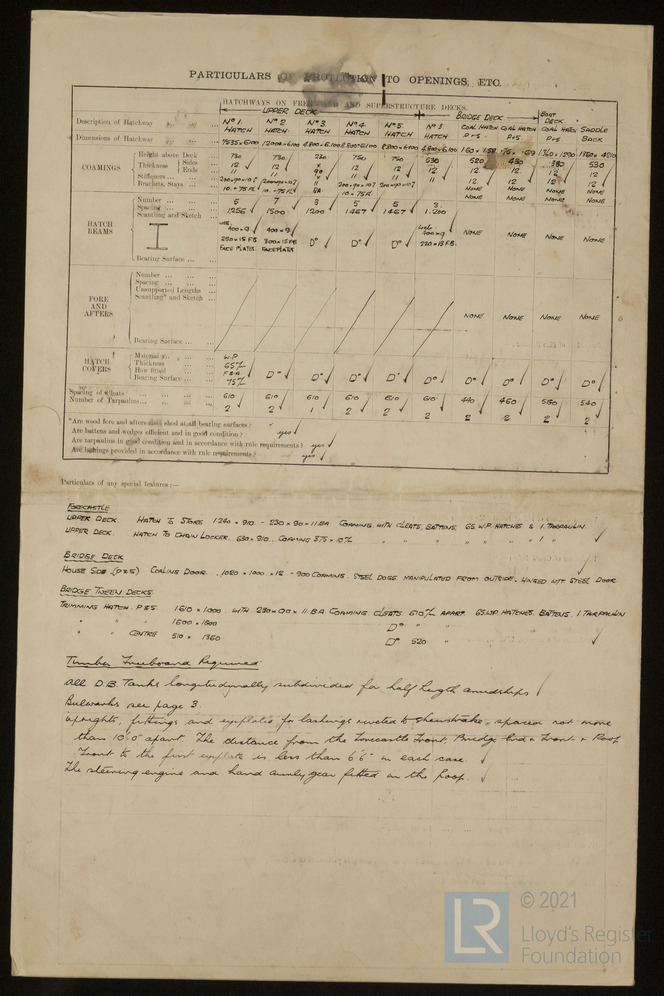 PARTICULARS OF PROTECTION TO OPENINGS, ETC.
HATCHWAYS ON FREEBOARD AND SUPERSTRUCTURE DECKS.
UPPER DECK BRIDGE DECK BOAT DECK
Description of Hatchway Nº 1 HATCH Nº 2 HATCH Nº 3 HATCH Nº 4 HATCH Nº 5 HATCH Nº 3 HATCH COAL HATCH P+S COAL HATCH P+S COAL HATCH P+S SADDLE BACK
Dimensions of Hatchway 7535×6100 12000×6100 4800×6100 8800×6100 8800×6100 4800×6100
COAMINGS
Height above Deck 730 730 230 750 750 530 520 450 380 530
Thickness Sides 12 12 12 12 12 12 12 12
Ends 11 11 11 11 11 12 12 12 12
Stiffeners NONE NONE NONE NONE
Brackets, Stays NONE NONE NONE NONE
HATCH BEAMS
Number 5 7 3 5 5 3 NONE NONE NONE NONE
Spacing 1256 1500 1200 1467 1467 1200
Scantling and Sketch
400×9 400×9 Dº Dº Dº 400×9 NONE NONE NONE NONE
250×15 F.B. 200×15 FB 220×15 F.B.
FACE PLATES FACEPLATES
Bearing Surface
FORE AND AFTERS
Number
Spacing
Unsupported Lengths
Scantling and Sketch
NONE NONE NONE NONE
Bearing Surface
HATCH COVERS
Material W.P.
Thickness 65%
How fitted F&A Dº Dº Dº Dº Dº Dº Dº Dº Dº
Bearing Surface 75%
Spacing of Cleats 610 610 610 610 610 610 440 460 580 540
Number of Tarpaulins 2 2 1 2 2 2 2 2 2 2
Are wood fore and afters steel shod at all bearing surfaces?
Are battens and wedges efficient and in good condition? yes
Are tarpaulins in good condition and in accordance with rule requirements? yes
Are lashings provided in accordance with rule requirements? yes
Particulars of any special features:—
FORECASTLE
UPPER DECK. HATCH TO STORE 1240 × 910 - 230 × 90 × 11 BA COAMING WITH CLEATS, BATTENS, 65 W.P. HATCHES & 1 TARPAULIN.
UPPER DECK. HATCH TO CHAIN LOCKER. 630 × 910 COAMING 575 × 10% " " " " " 1 "
BRIDGE DECK
HOUSE SIDE (P&S) COALING DOOR. 1080 × 1000 × 15 - 900 COAMING. STEEL DOGS. MANIPULATED FROM OUTSIDE. HINGED W.T. STEEL DOOR
BRIDGE TWEEN DECKS
TRIMMING HATCH. P&S 1610 × 1000 WITH 230 × 90 × 11 BA COAMING CLEATS 610% APART. 65 W.P. HATCHES. BATTENS. 1 TARPAULIN
" " " 1600 × 1800 Dº "
" " CENTRE 510 × 1360 Dº 520 "
Timber Freeboard Required
All D.B. Tanks longitudinally subdivided for half length amidships
Bulwarks see page 3.
Uprights, fittings and eyeplates for lashings riveted to sheerstrake, spaced not more
than 10'0" apart. The distance from the Forecastle Front, Bridge End & Front & Poop
Front to the first eyeplate is less than 6'6" in each case.
The steering engine and hand auxly gear fitted in the poop.
LR
© 2021
Lloyd's Register
Foundation